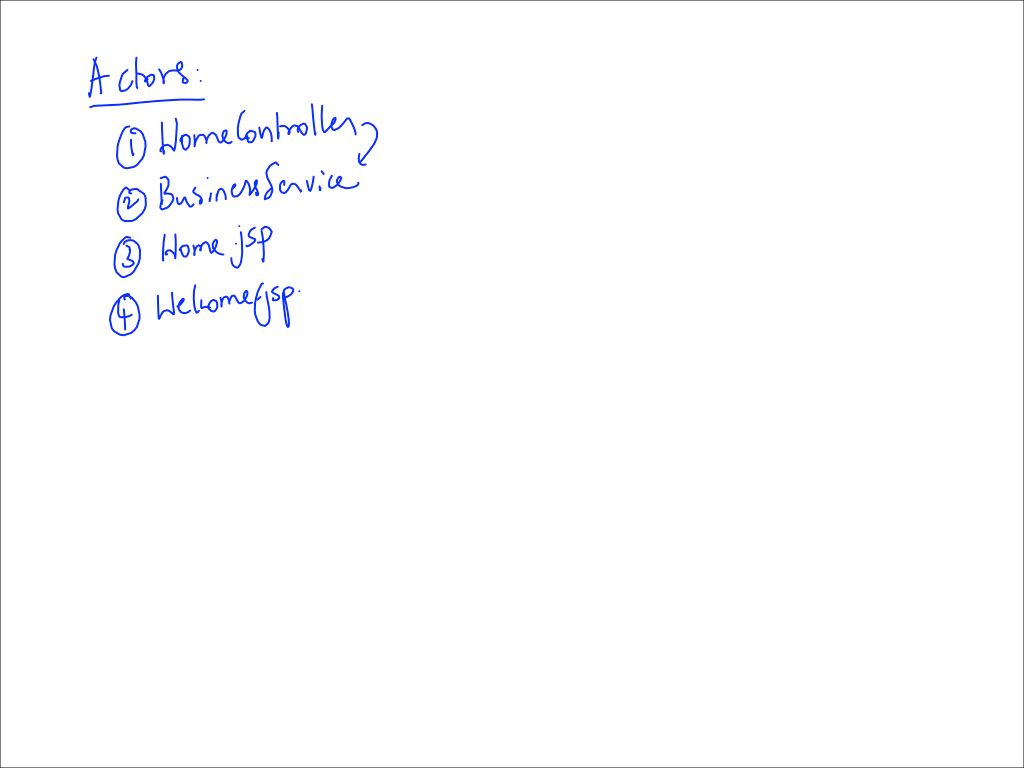 Actors:
① HomeController
② BusinessService
③ Home.jsp
④ Welcome.jsp